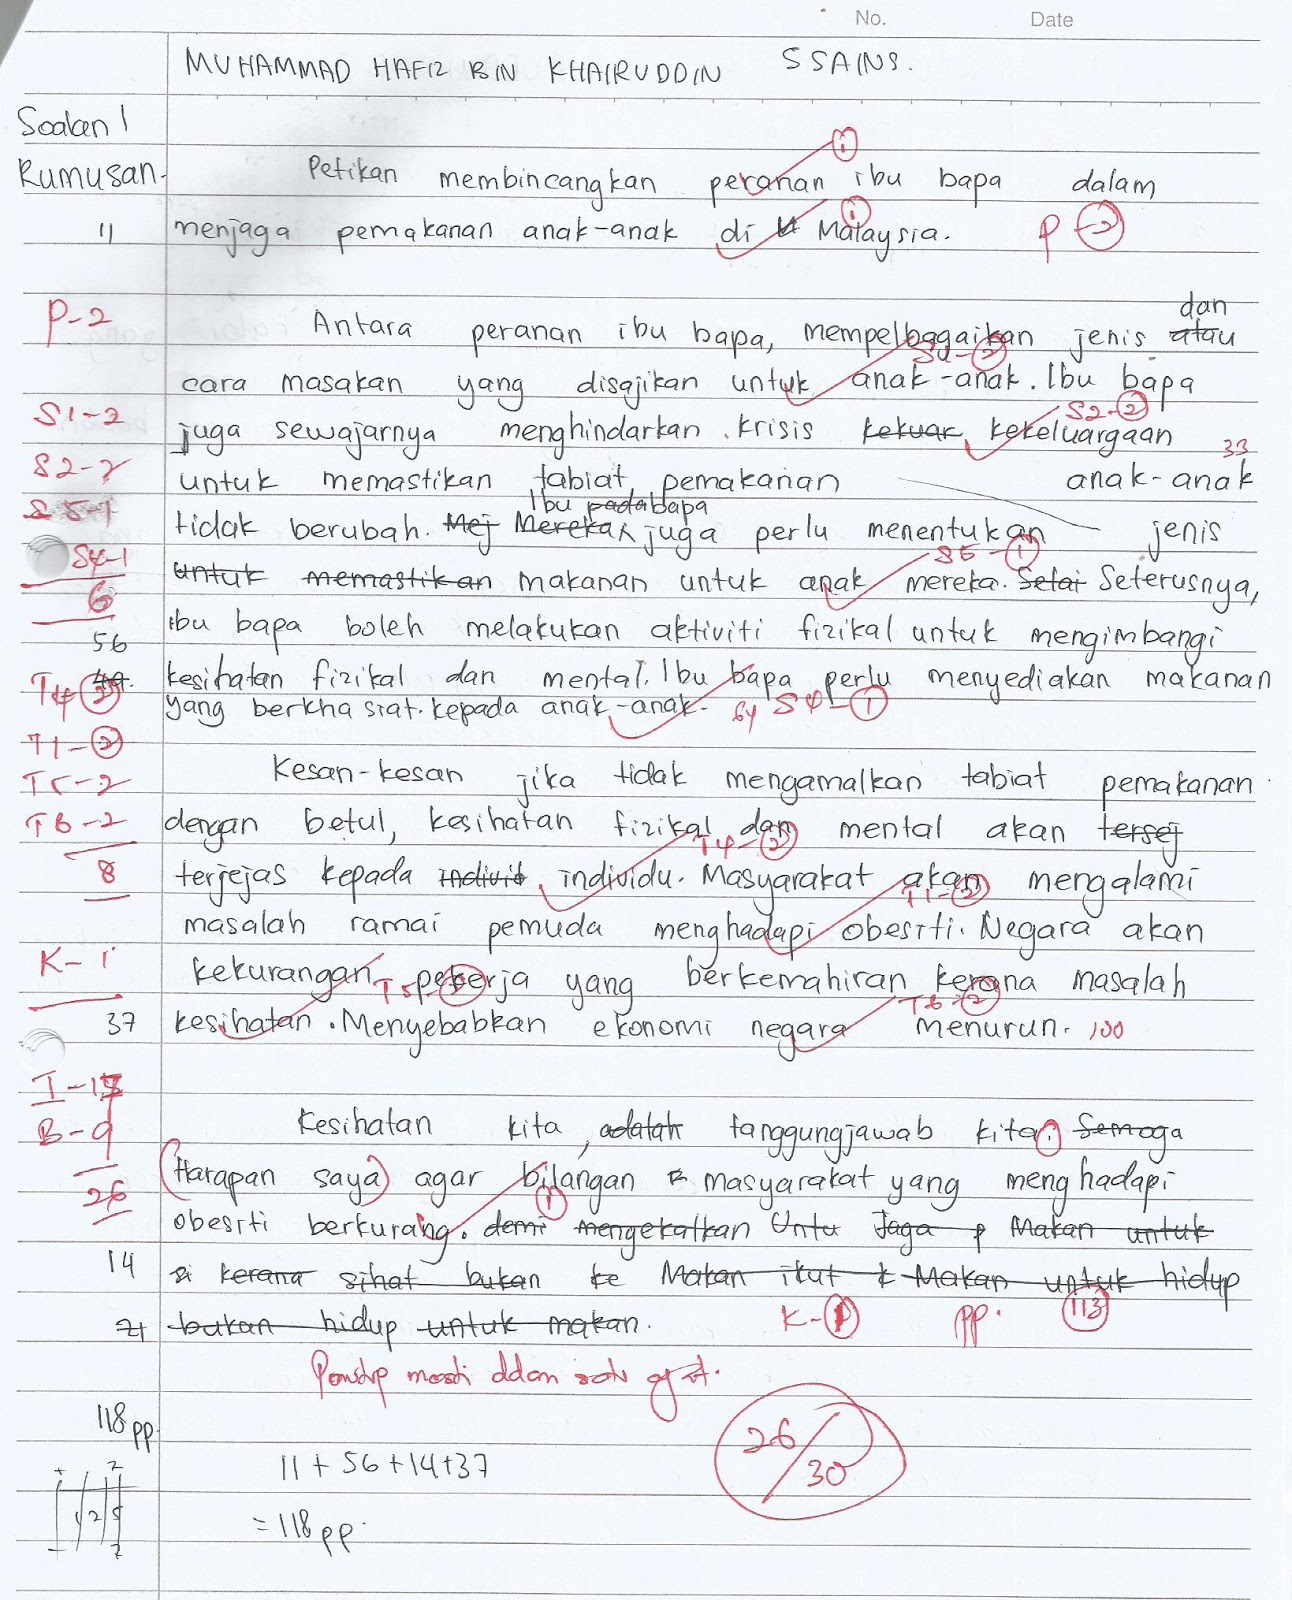 No. Date
MUHAMMAD HAFIZ BIN KHAIRUDDIN 5 SAINS.
Soalan 1
Rumusan. Petikan membincangkan peranan ibu bapa dalam
11 menjaga pemakanan anak-anak di Malaysia. P-2
dan
P-2 Antara peranan ibu bapa, mempelbagaikan jenis atau
S1-2
cara masakan yang disajikan untuk anak-anak. Ibu bapa
S2-2
S1-2 juga sewajarnya menghindarkan krisis kekuar kekeluargaan 33
S2-2 untuk memastikan tabiat pemakanan anak-anak
Ibu pada bapa
S5-1 tidak berubah. Mej Mereka juga perlu menentukan jenis
S5-1
S4-1 untuk memastikan makanan untuk anak mereka. Selai Seterusnya,
6 ibu bapa boleh melakukan aktiviti fizikal untuk mengimbangi
56
T4-2 kesihatan fizikal dan mental. Ibu bapa perlu menyediakan makanan
yang berkhasiat kepada anak-anak. 64 S4-1
T1-2
T5-2 Kesan-kesan jika tidak mengamalkan tabiat pemakanan
T6-2 dengan betul, kesihatan fizikal dan mental akan tersej
T4-2
8 terjejas kepada individ individu. Masyarakat akan mengalami
T1-2
masalah ramai pemuda menghadapi obesiti. Negara akan
K-1 kekurangan pekerja yang berkemahiran kerana masalah
T5-2 T6-2
37 kesihatan. Menyebabkan ekonomi negara menurun. 100
I-17
B-9 Kesihatan kita, adalah tanggungjawab kita. Semoga
26 (Harapan saya) agar bilangan masyarakat yang menghadapi
1
obesiti berkurang. demi mengekalkan Untu Jaga p Makan untuk
14 si kerana sihat bukan ke Makan ikut k Makan untuk hidup
21 bukan hidup untuk makan. K-1 pp. 113
dalam satu ayat.
118 pp.
26/30
11 + 56 + 14 + 37
= 118 pp.